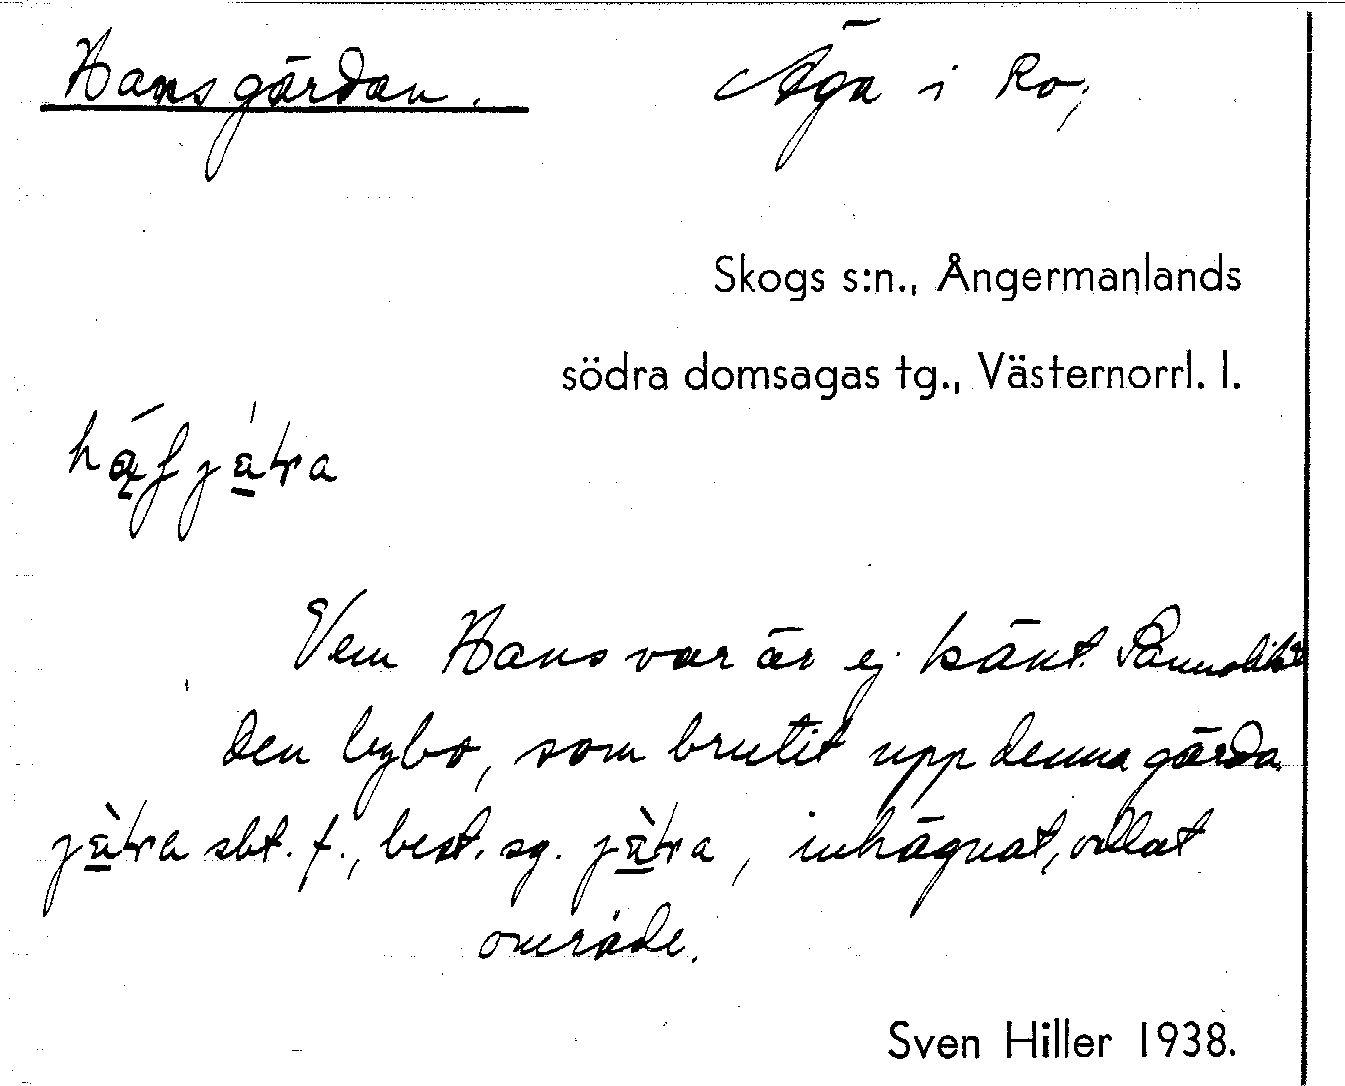 Hansgärdan. Äga i Ro,
Skogs s:n., Ångermanlands
södra domsagas tg., Västernorrl. l.
Vem Hans var är ej känt. Sannolikt
den bybo, som brutit upp denna gärda.
sbt. f., best. sg. , inhägnat, odlat
område.
Sven Hiller 1938.